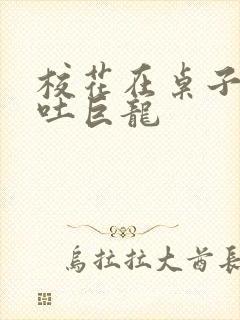 校花在桌子
吐巨龍
烏拉拉大酋長